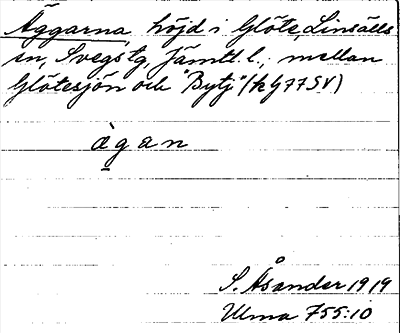 Äggarna, höjd i Glöte, Linsälls
sn, Svegs tg, Jämtl. l., mellan
Glötesjön och "Bytj" (kg 77 SV)
ägan
S. Åsander 1919
Ulma 755:10